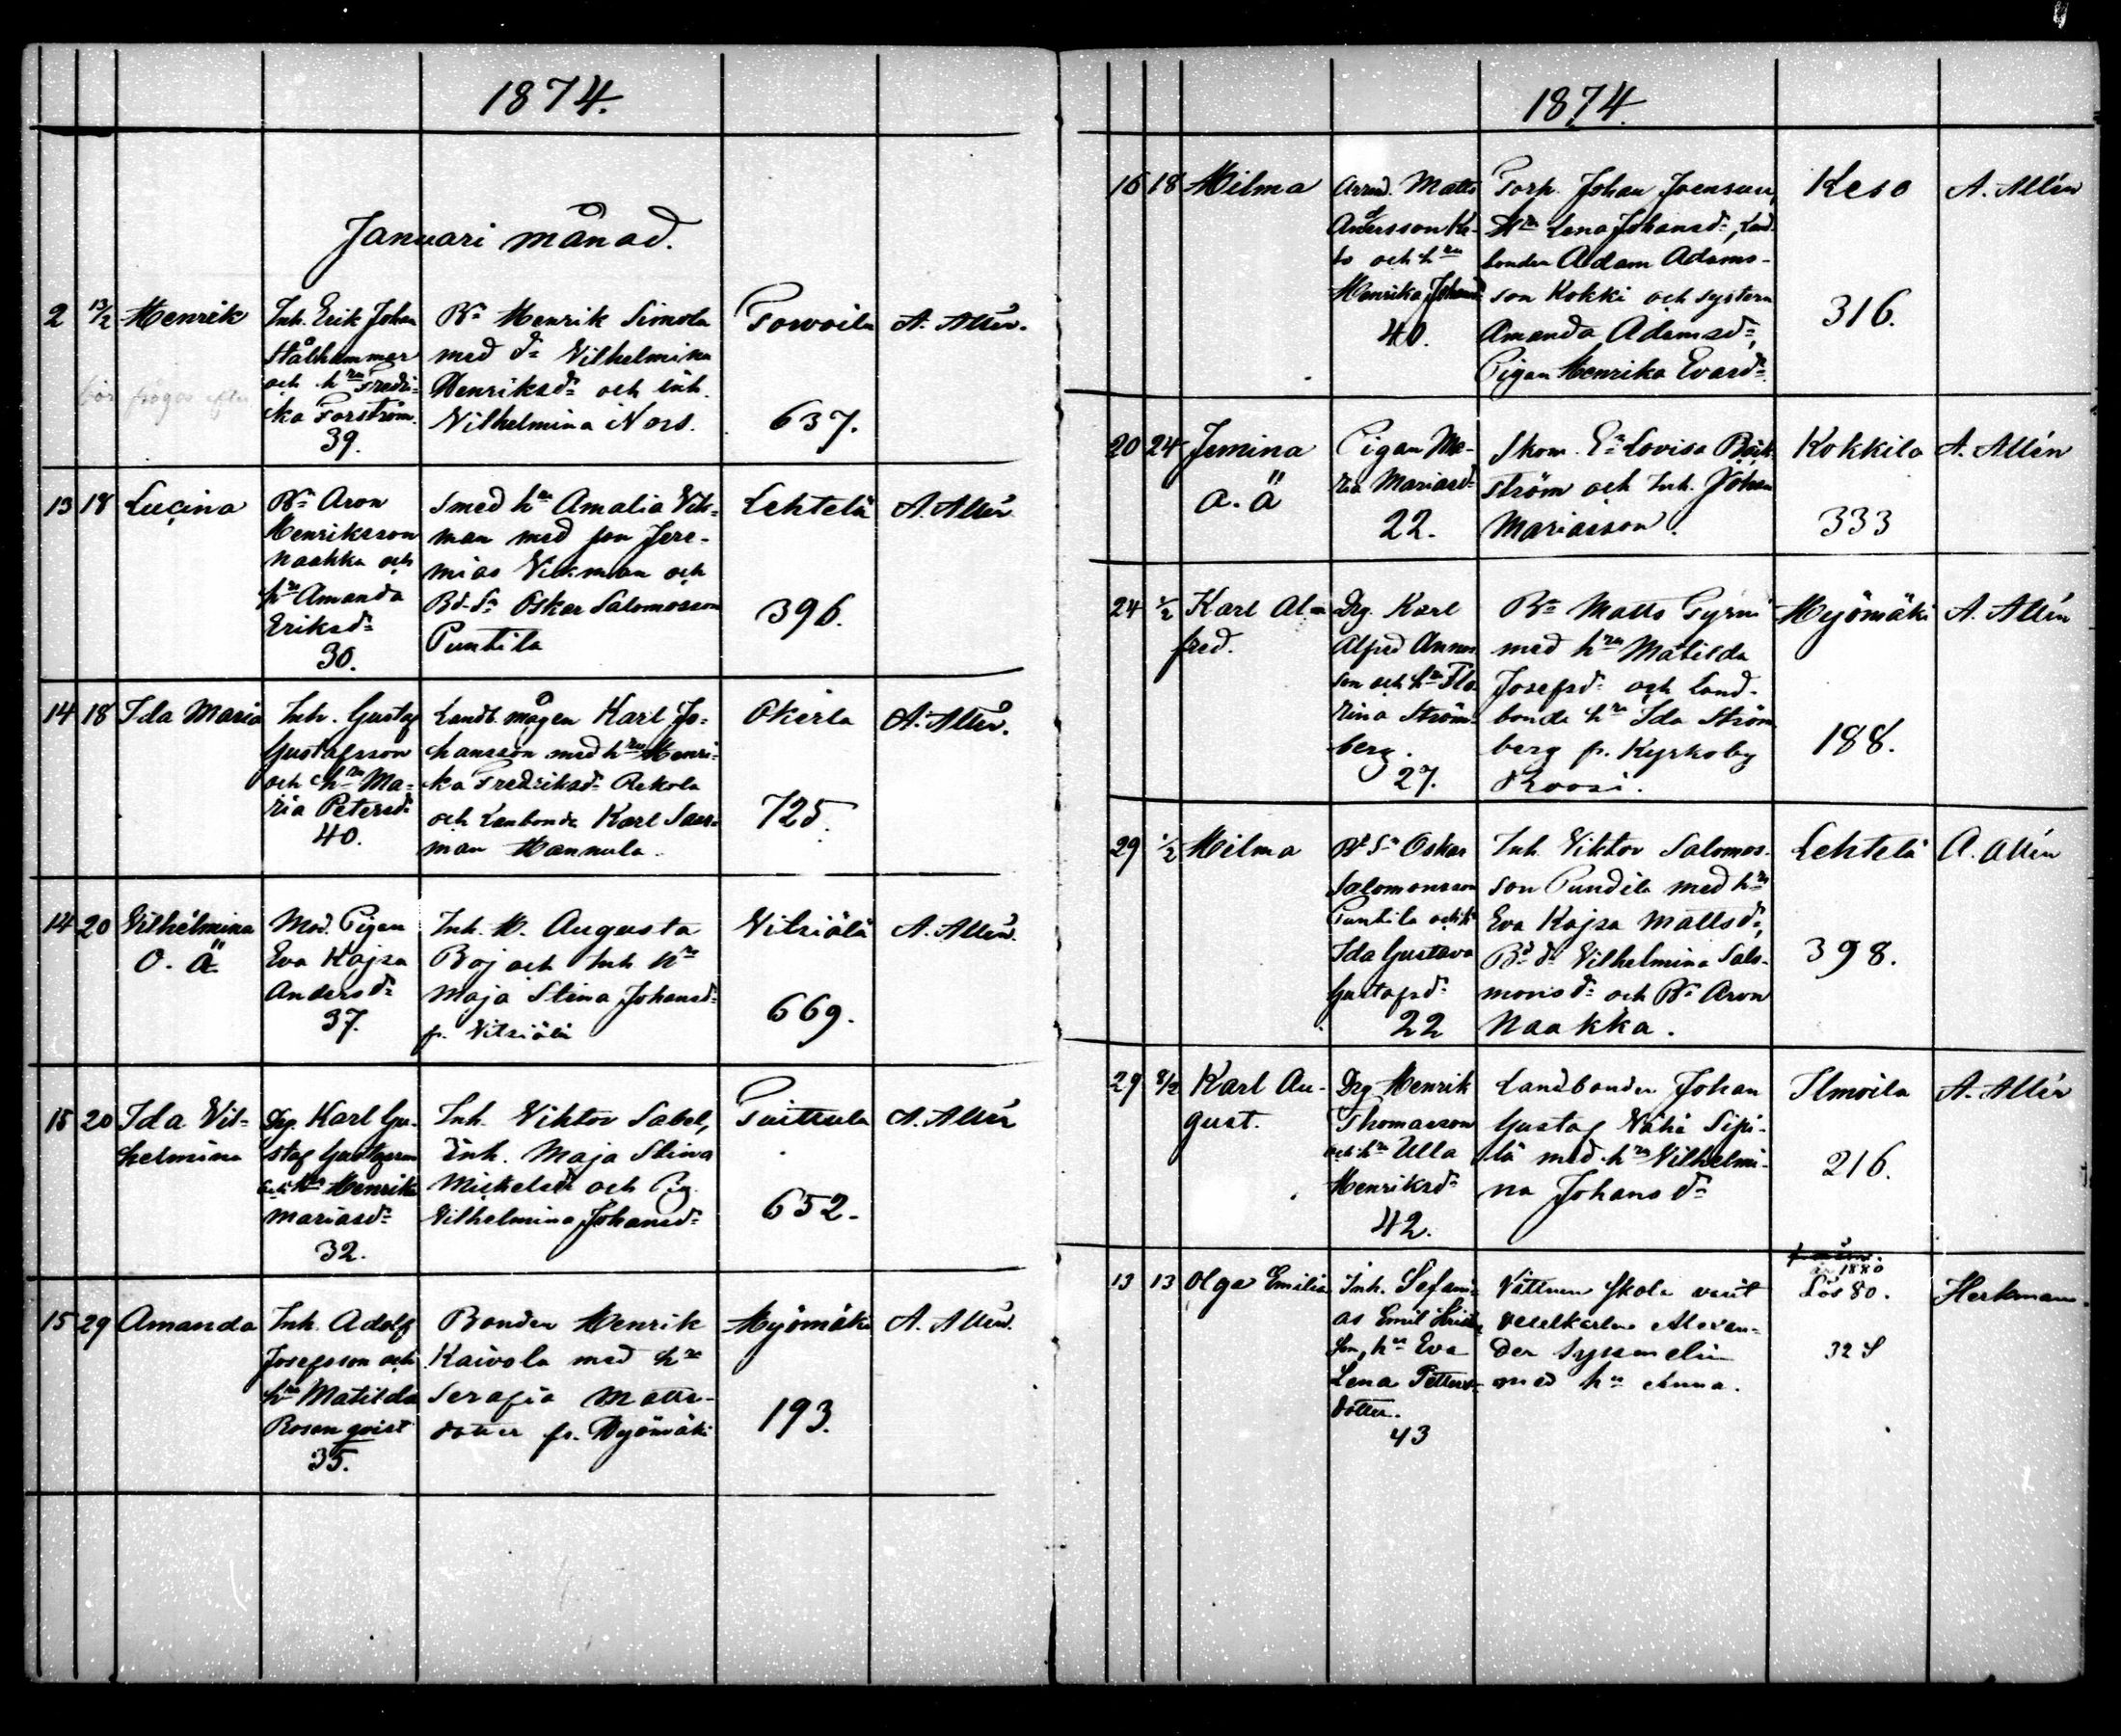 1874.
Januari månad.
2 13/2 Henrik
Inh. Erik Johan
Stålhammer
och hru Fredri-
ka Forström.
39.
bör frågas efter
Bn Henrik Simola
med dr Vilhelmina
Henriksdr och inh.
Vilhelmina Nors.
Torvoila
637.
A. Allén.
13 18 Lucina
Bn Aron
Henriksson
Naakka och
hru Amanda
Eriksdr
30.
Smed hru Amalia Vik-
man med son Jere-
mias Vikman och
Bd. Sn Oskar Salomosson
Puntila
Lehtelä
396.
A. Allén
14 18 Ida Maria
Inh. Gustaf
Gustafsson
och hru Ma-
ria Petersdr
40.
Landb. mågen Karl Jo-
hansson med hru Henri-
ka Fredriksdr Rekola
och Lanbonde Karl Saar-
man Hannula.
Okerla
725.
A. Allén.
14 20 Vilhelmina
O. Ä.
Mod. Pigan
Eva Kajsa
Andersdr
37.
Inh. H. Augusta
Boj och Inh. Hru
Maja Stina Johansdr
fr. Vitsiälä
Vitsiälä
669.
A. Allén.
15 20 Ida Vil-
helmina
Drg. Karl Gu-
staf Gustafsson
och hru Henrika
Mariasdr
32.
Inh. Viktor Sabel,
Inh. Maja Stina
Michelsdr och Pig.
Vilhelmina Johansdr
Puittula
652.
A. Allén
15 29 Amanda
Inh. Adolf
Josefsson och
hru Matilda
Rosenqvist
35.
Bonden Henrik
Kaivola med hru
Serafia Matts-
dotter fr. Myömäki
Myömäki
193.
A. Allén.
1874.
16 18 Hilma
Arrend. Matts
Andersson Ke-
so och hru
Henrika Johansdr
40.
Torp. Johan Joensuu,
Hru Lena Johansdr, Land-
bonden Adam Adams-
son Kokki och systern
Amanda Adamsdr,
Pigan Henrika Evasdr
Keso
316.
A. Allén
20 24 Jemina
O. Ä
Pigan Ma-
ria Mariasdr
22.
Skom. En Lovisa Bäck-
ström och Inh. Johan
Mariasson.
Kokkila
333
A. Allén
24 1/2 Karl Al-
fred.
Drg. Karl
Alfred Annas-
son och hru Flo-
rina Ström-
berg.
27.
Bn Matts Pyrni
med hru Matilda
Josefsdr och Land-
bonde hru Ida Ström
berg fr. Kyrkoby
Roosi.
Myömäki
188.
A. Allén
29 1/2 Hilma
Bd Sn Oskar
Salomonsson
Puntila och hru
Ida Gustava
Gustafsdr
22
Inh. Viktor Salomos-
son Pundila med hru
Eva Kajsa Mattsdr,
Bd dr Vilhelmina Salo-
monsdr och Bn Aron
Naakka.
Lehtelä
398.
A. Allén
29 8/2 Karl Au-
gust.
Drg. Henrik
Thomasson
och hru Ulla
Henriksdr
42.
Landbonden Johan
Gustaf Vähä Sipi-
lä med hru Vilhelmi-
na Johansdr
Ilmoila
216.
A. Allén
13 13 Olga Emilia
Inh. Sefani-
as Emil
son, hu Eva
Lena Petters-
dotter.
43
Vittnen skola varit
Alexan-
der Syssmelin
med hu Anna.
1880
Lös 80.
Herkman